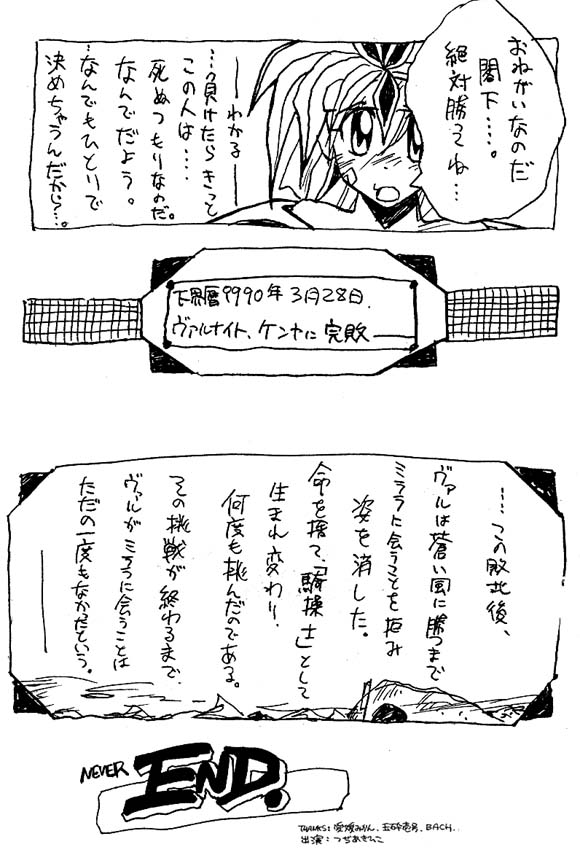 おねがいなのだ
閣下‥‥。
絶対勝ってね‥‥
――わかる――
‥‥負けたらきっと
この人は‥‥
死ぬつもりなのだ。
なんでだよう。
‥なんでもひとりで
決めちゃうんだから‥‥。
下界暦9990年3月28日、
ヴァルナイト、ケンヤに完敗――
‥‥この敗北後、
ヴァルは蒼い風に勝つまで
ミララに会うことを拒み
姿を消した。
命を捨て、「騎操士」として
生まれ変わり、
何度も挑んだのである。
その挑戦が終わるまで
ヴァルがミララに会うことは
ただの一度もなかったという。
NEVER END.
THANKS: 愛媛みりん、玉砕壱号、BACH..
出演:つぢあきひこ